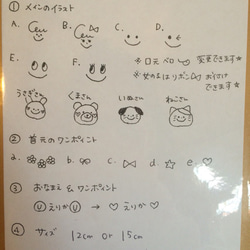 ① メインのイラスト
A. B. C. D.
E. F. ※口元ペロ 変更できます★
※女の子はリボンお付けできます★
うさぎさん くまさん いぬさん ねこさん
② 首元のワンポイント
a. b. c. d. e.
③ おなまえ & ワンポイント
えりか → ♡えりか♡
④ サイズ 12cm or 15cm